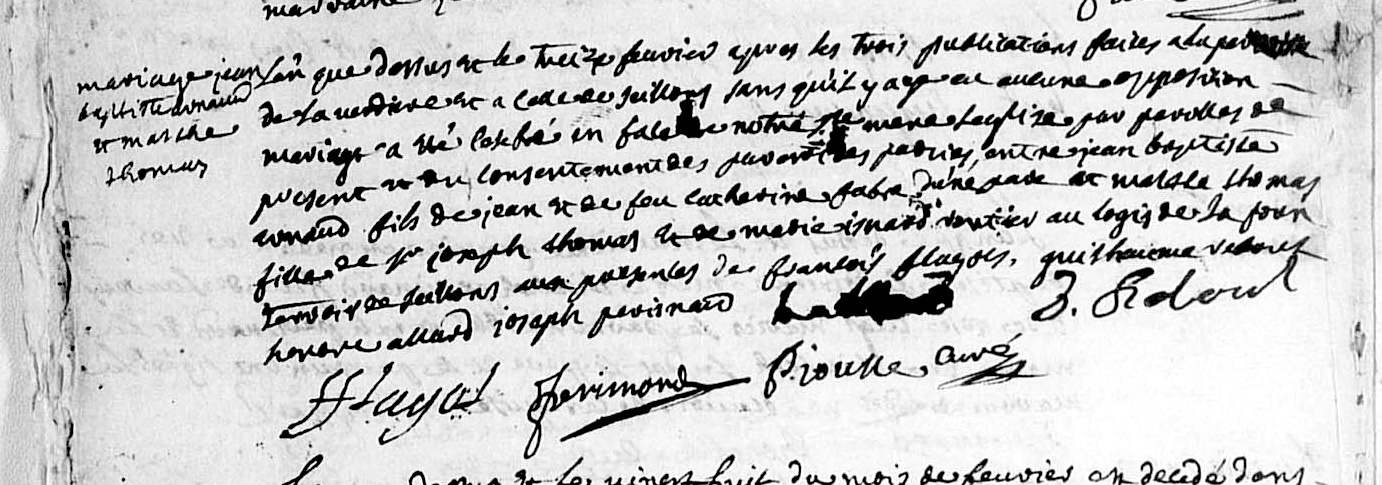 mariage jean
baptiste arnaud
et marthe
thomas
l'an que dessus et le treize feuvier apres les trois publications faites a la
de la verdiere et a celle de seillons sans qu'il y aye eu aucune opposition
mariage a été celebré en face de notre ste mere leglise par parolles de
present et du consentement des parents des parties, entre jean baptiste
arnaud fils de jean et de feu catherine fabre d'une part et marthe thomas
fille de sr joseph thomas et de marie isnard rentier au logis de la
de seillons aux presences de françois flayols, guilheaume reboul
honore allard joseph perimond
J. Reboul
F flayol J perimond P. joulle curé
et le vingt huit du mois de feuvier est decedé dans